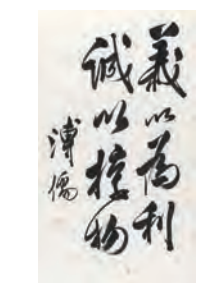 義以為利
誠以接物
溥儒